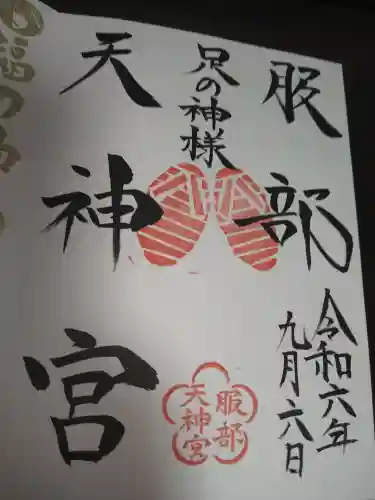 服部
足の神様
天神宮
令和六年
九月六日
服部
天神宮